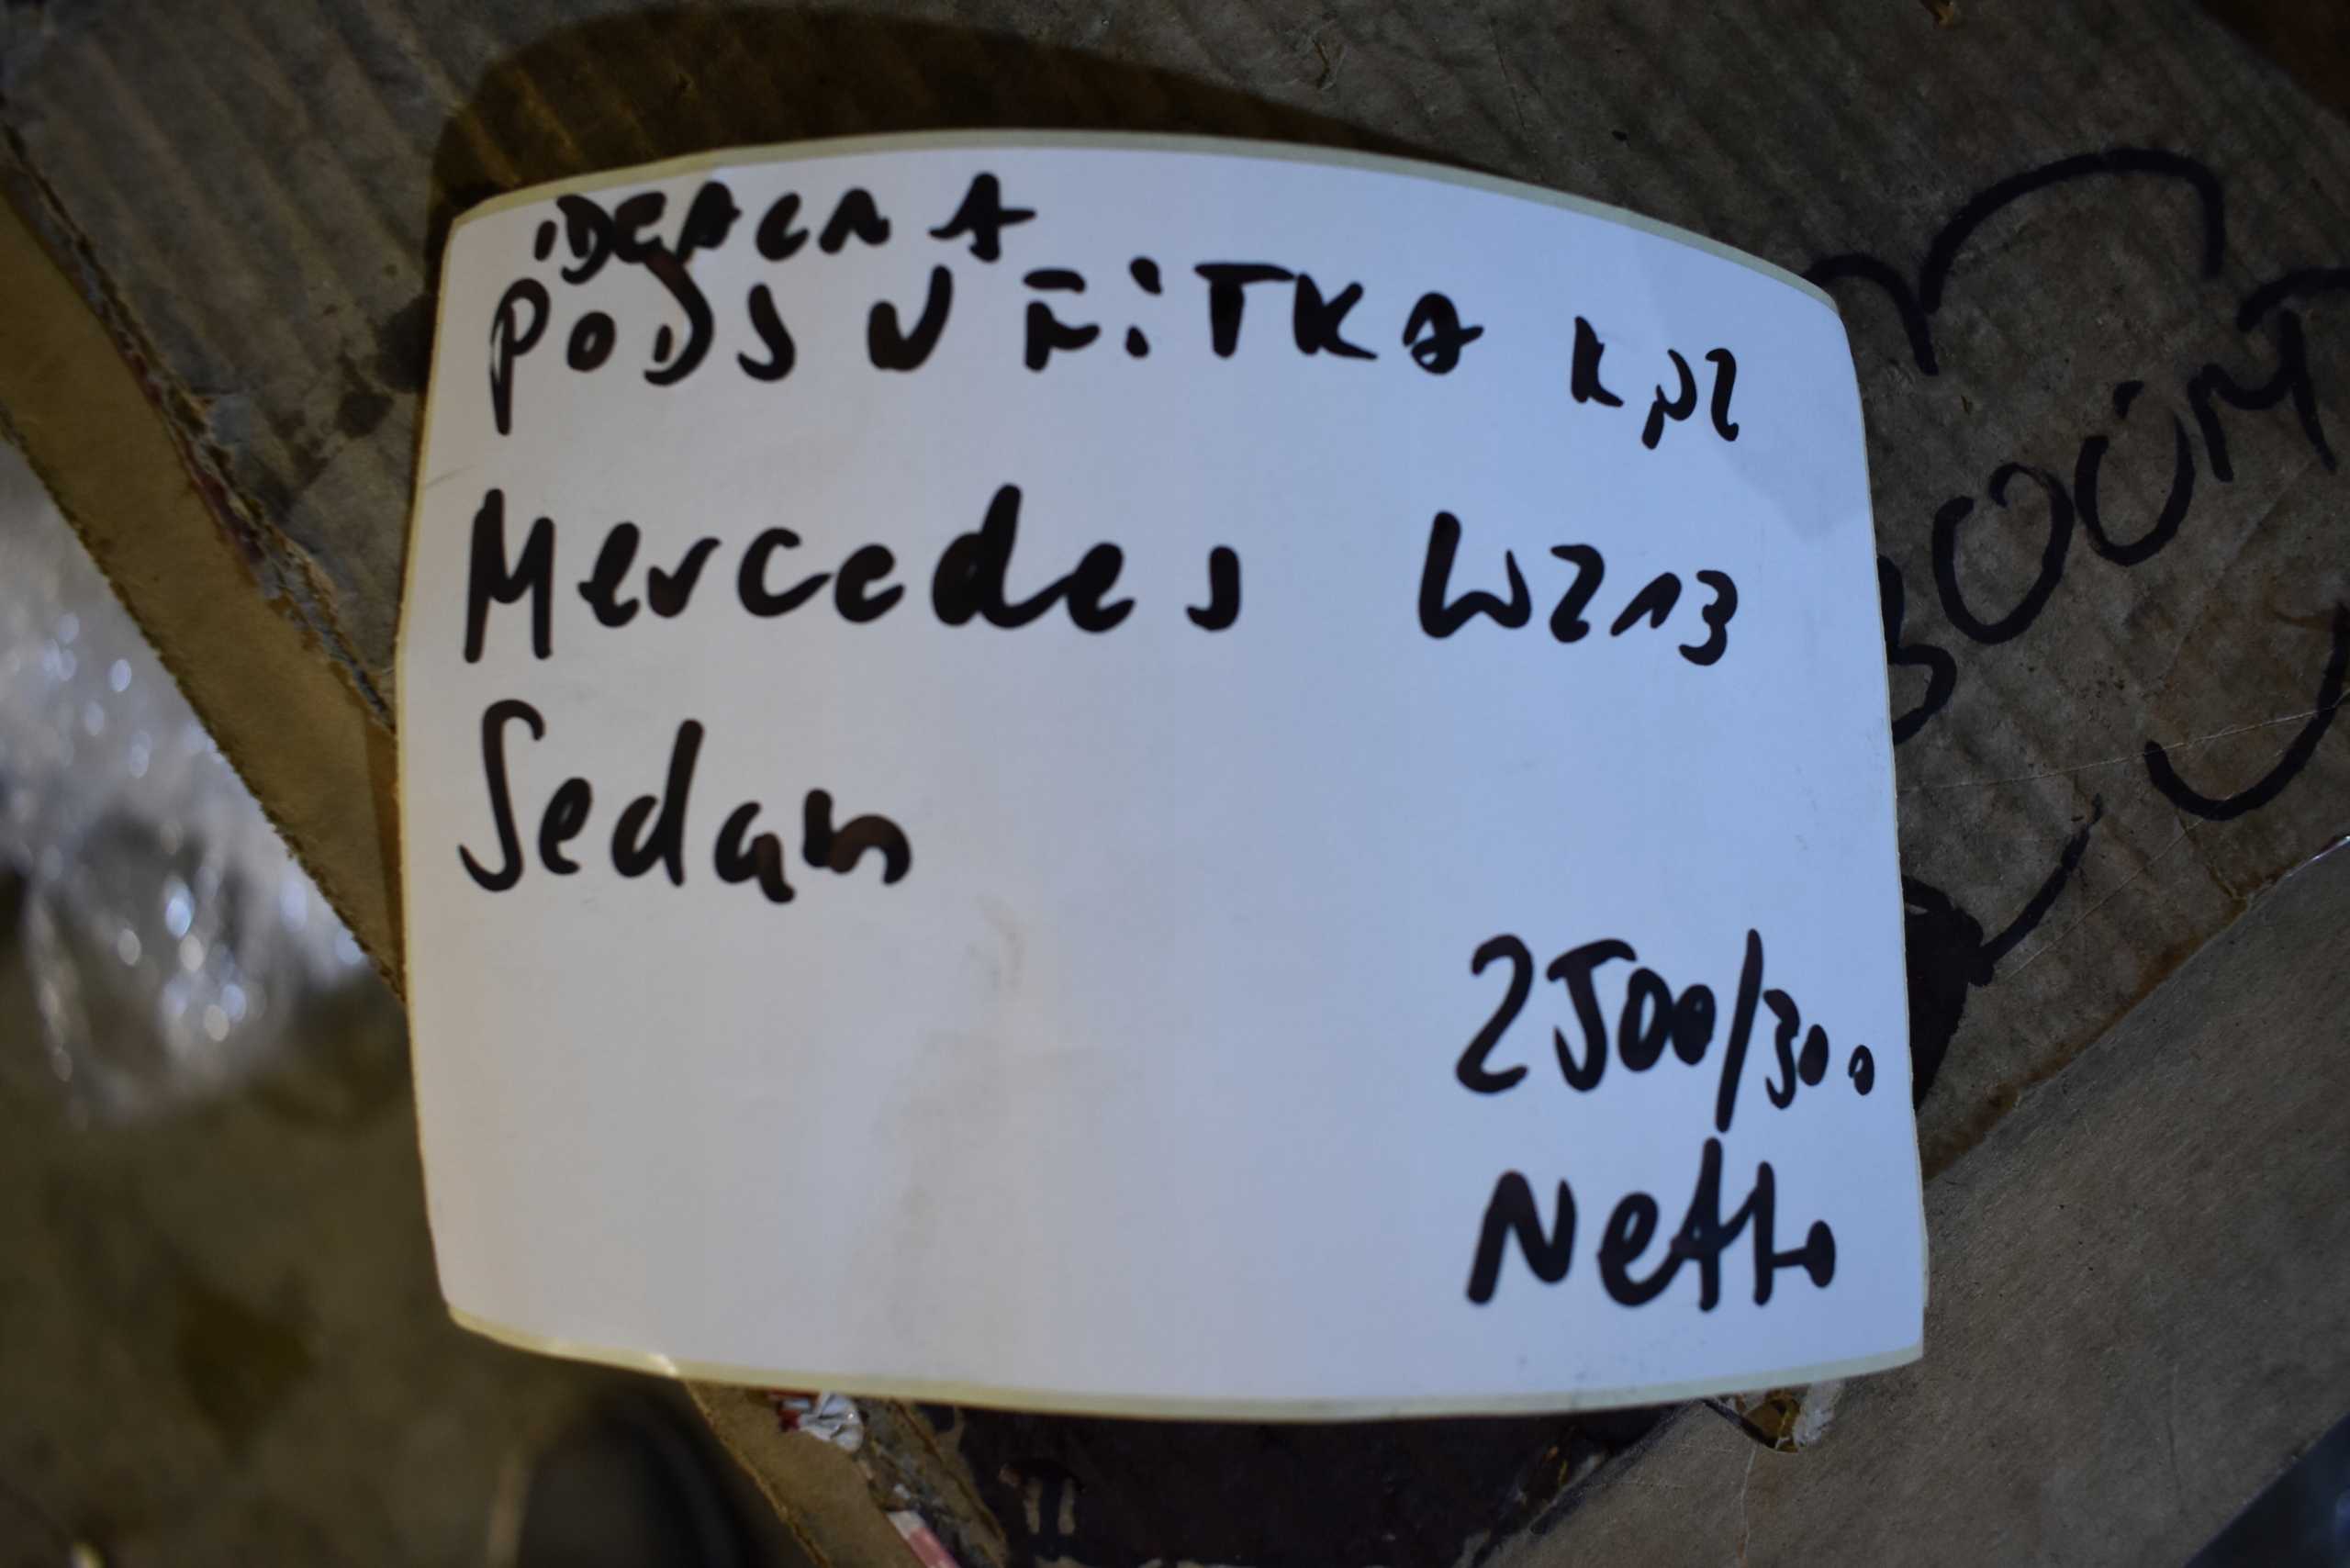 iDEALNA
PODSUFiTKA kpl
Mercedes W213
Sedan
2500/300
Netto